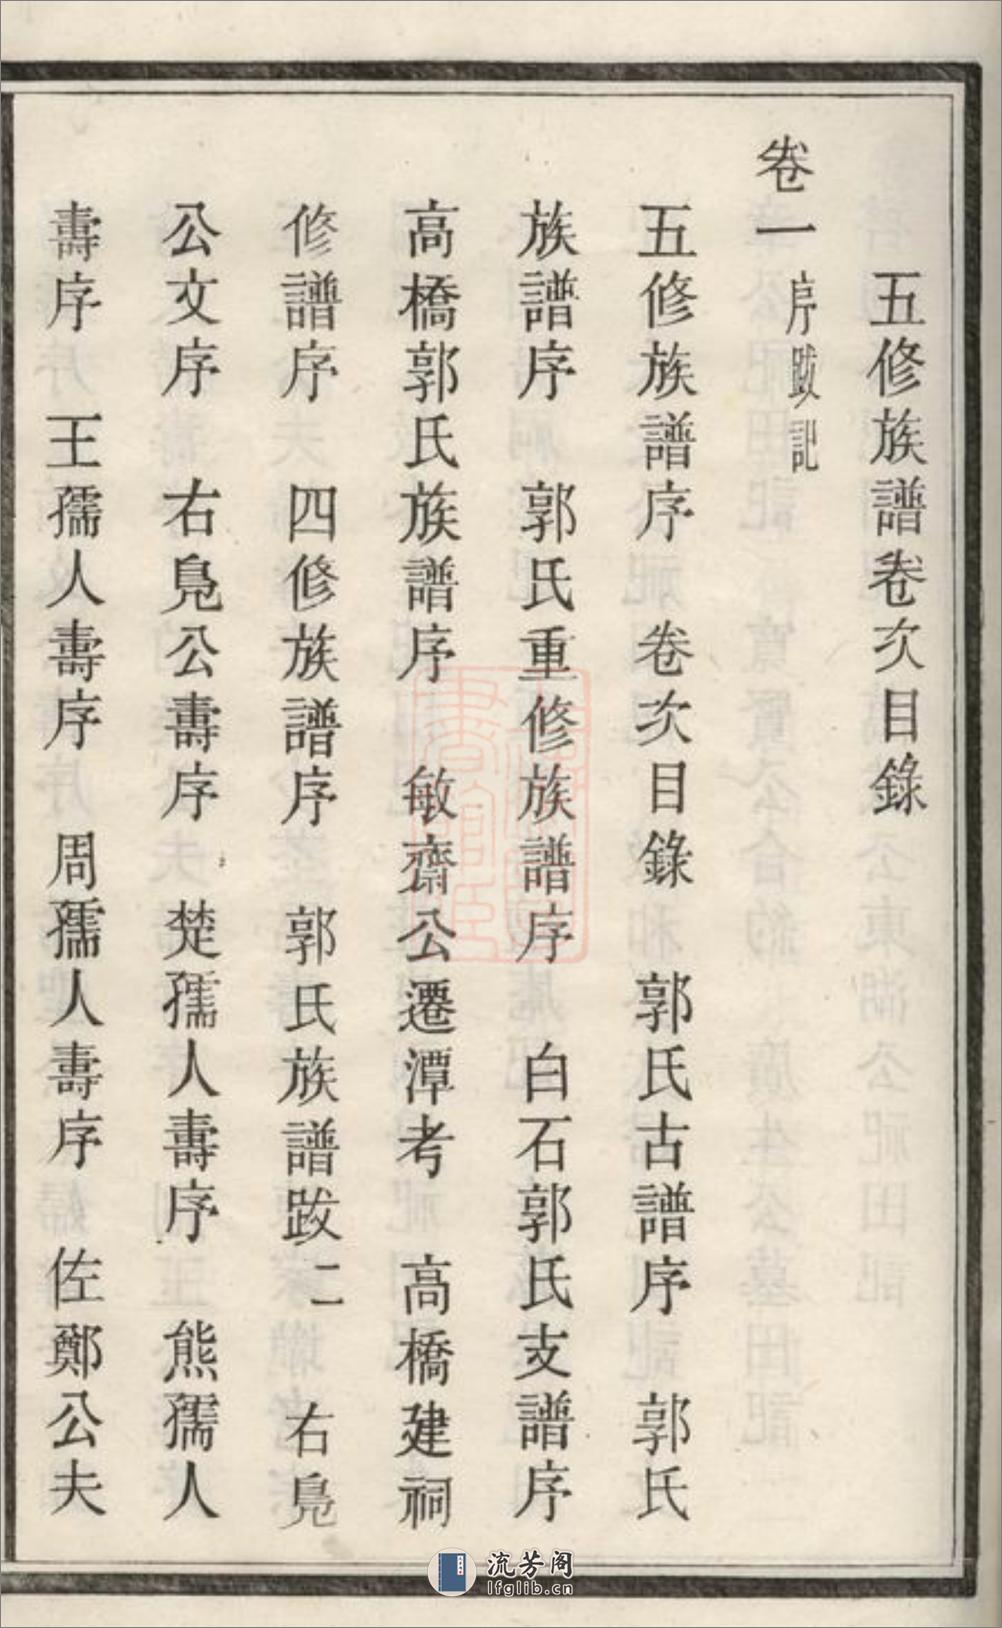 五修族譜卷次目錄
卷一 序跋記
五修族譜序 卷次目錄 郭氏古譜序 郭氏
族譜序 郭氏重修族譜序 白石郭氏支譜序
高橋郭氏族譜序 敏齋公遷潭考 高橋建祠
修譜序 四修族譜序 郭氏族譜跋二 右鳧
公文序 右鳧公壽序 楚孺人壽序 熊孺人
壽序 王孺人壽序 周孺人壽序 佐鄭公夫
流芳阁
lfglib.cn